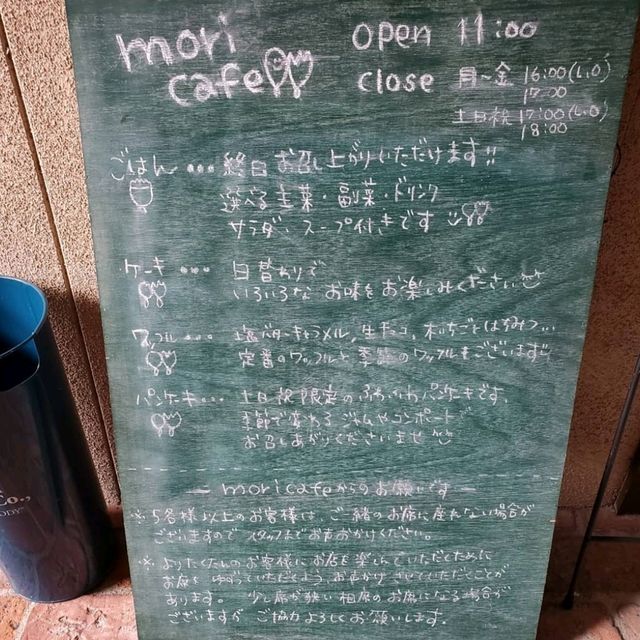 mori cafe
open 11:00
close 月〜金 16:00(L.O) 17:00
土日祝 17:00(L.O) 18:00
ごはん ・・・ 終日 お召し上がりいただけます!!
選べる 主菜・副菜・ドリンク
サラダ・スープ付きです
ケーキ ・・・ 日替わりで
いろいろな お味を お楽しみください
ワッフル ・・・ 塩バターキャラメル, 生チョコ, 木いちごとはちみつ...
定番のワッフルと 季節のワッフルもございます
パンケーキ ・・・ 土日祝限定の ふわふわパンケーキです。
季節で変わる ジャムやコンポートで
お召しあがりくださいませ
― mori cafeからのお願いです ―
※ 5名様以上のお客様は、ご一緒のお席に座れない場合が
ございますので スタッフまでお声おかけください。
※ よりたくさんのお客様に お店を楽しんでいただくために
お席を ゆずっていただくよう、お声かけ させていただくことが
あります。 少し席が狭い 相席の お席になる場合が
ございますが ご協力よろしくお願いします。
Co.,
BODY"